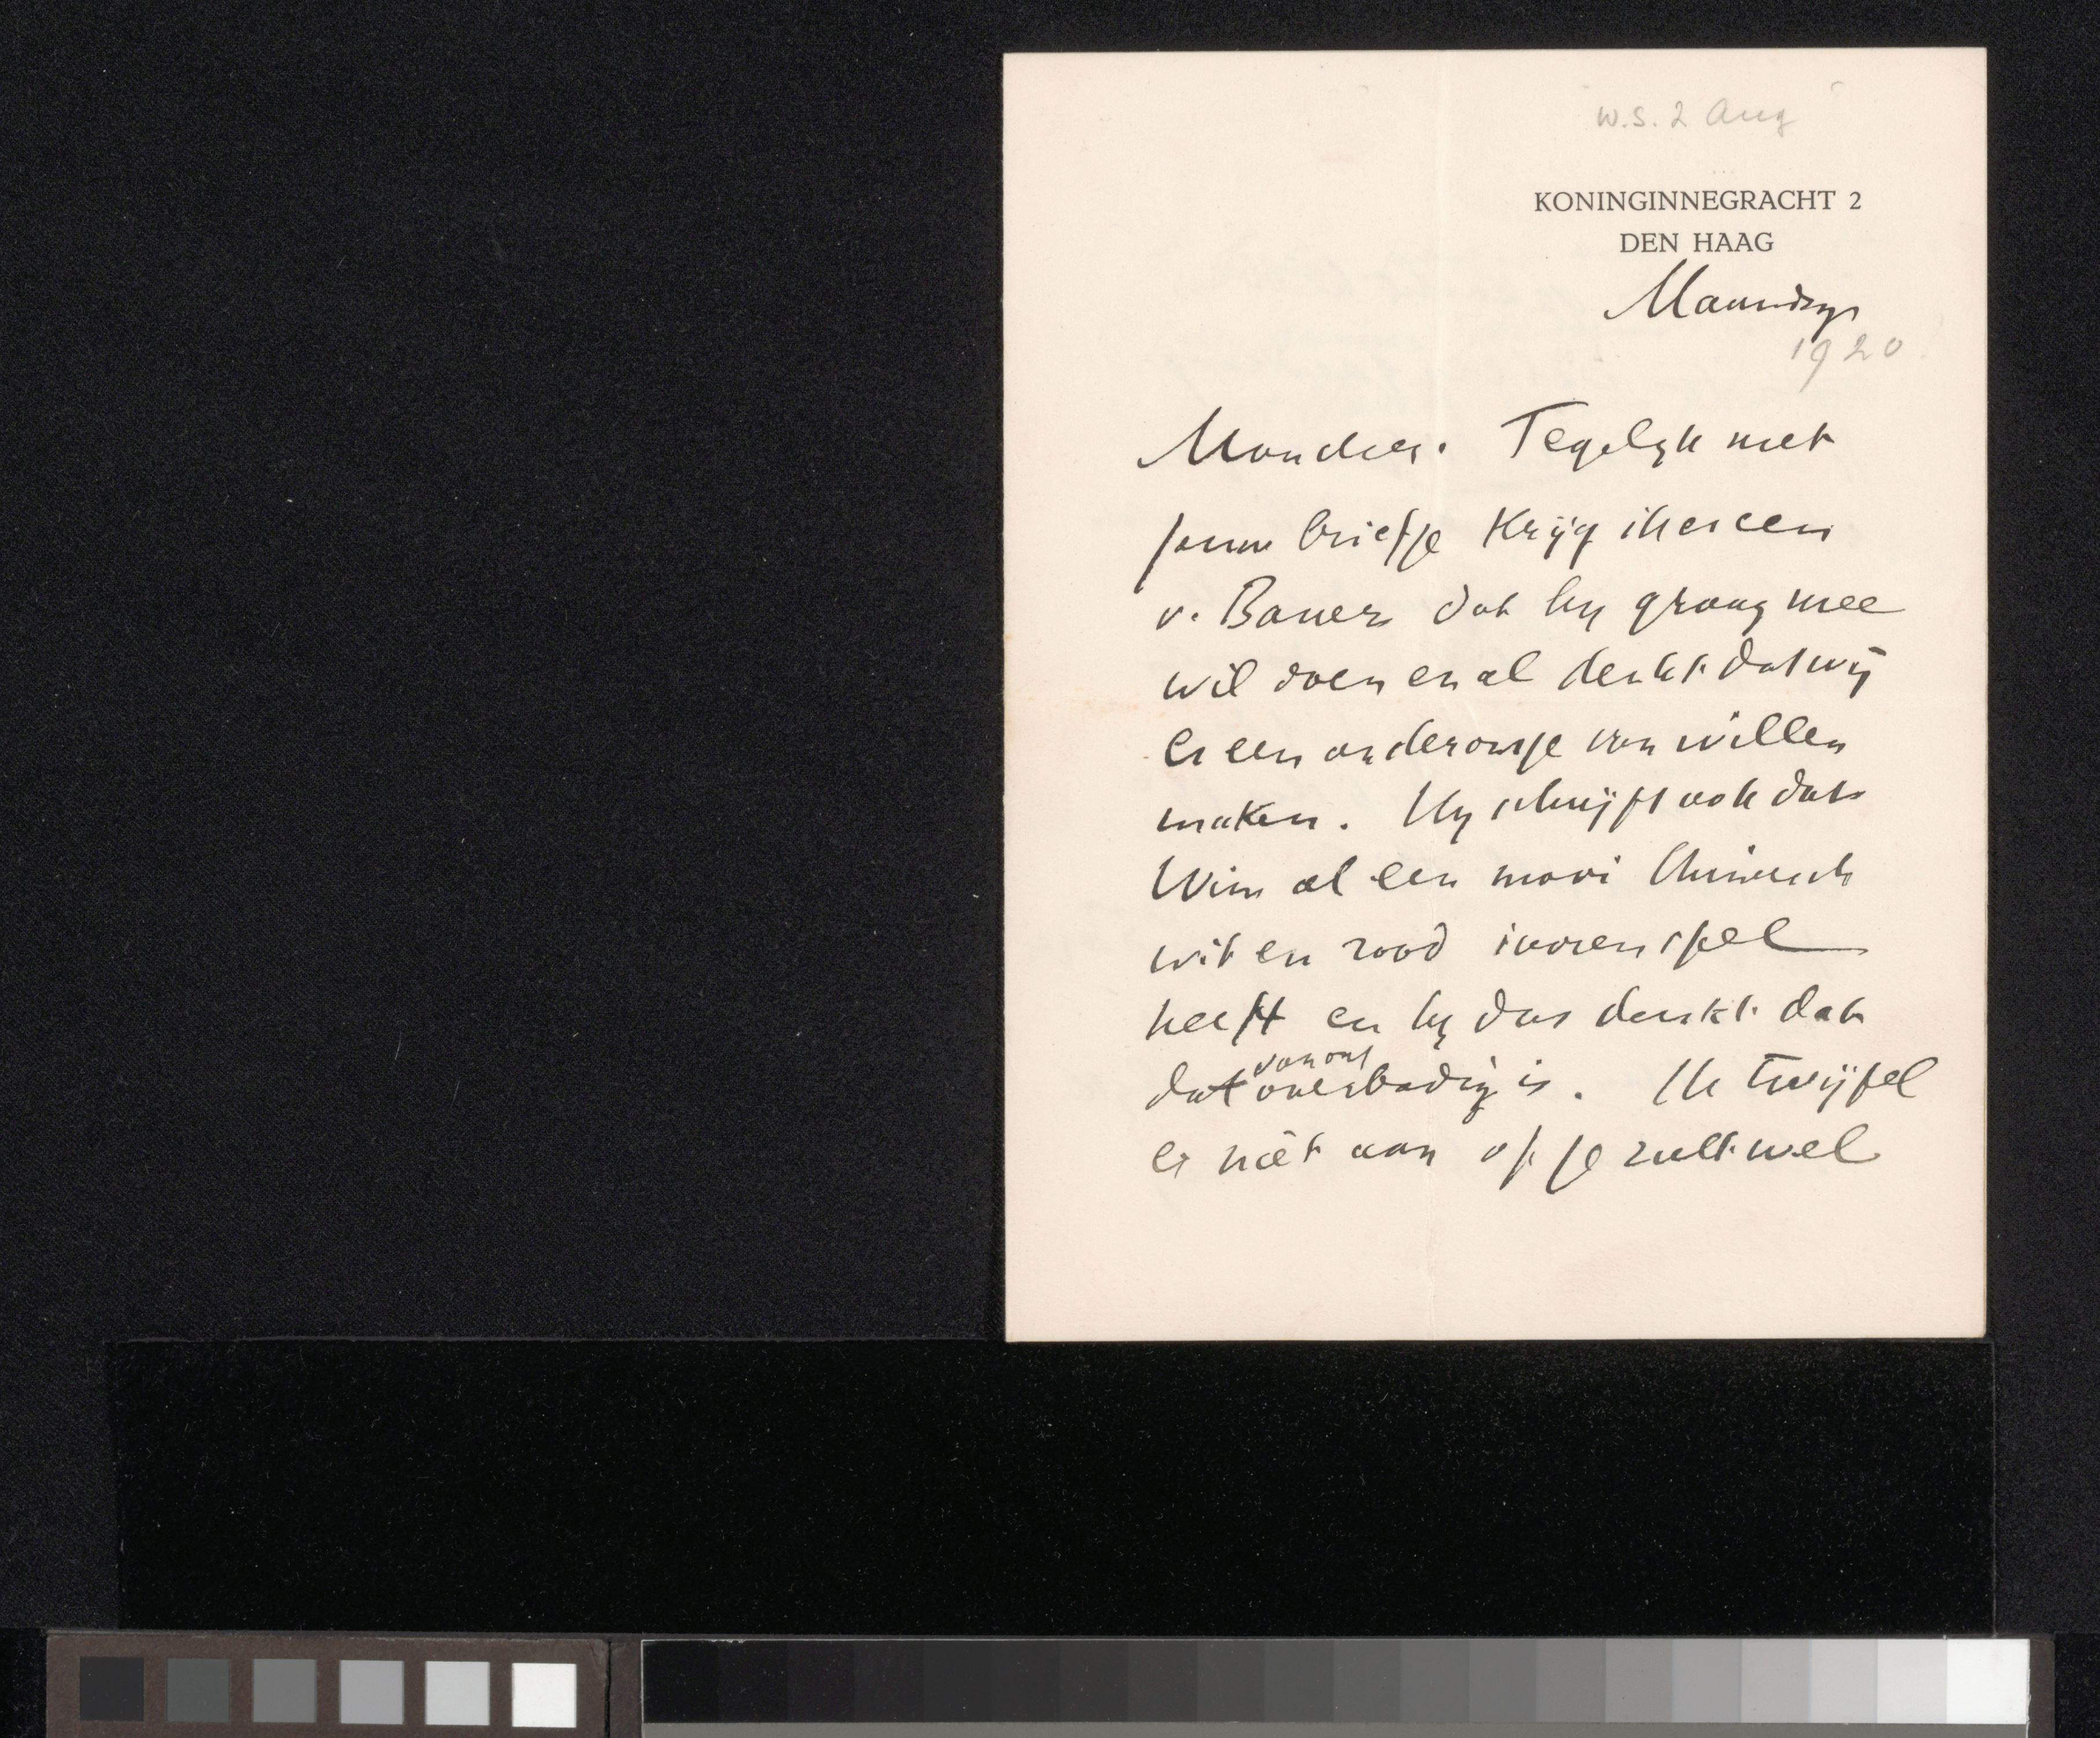 W.S. 2 Aug
KONINGINNEGRACHT 2
DEN HAAG
Maandag
1920
Mon cher. Tegelyk met
jouw briefje krijg ik er een
v. Bauer dat hy graag mee
wil doen en al denkt dat wij
er een onderonsje van willen
maken. Hy schrijft ook dat
Wim al een mooi Chineesch
wit en rood ivoren spel
heeft en hy dus denkt dat
dat van ons overbodig is. Ik twijfel
er niet aan of je zult wel